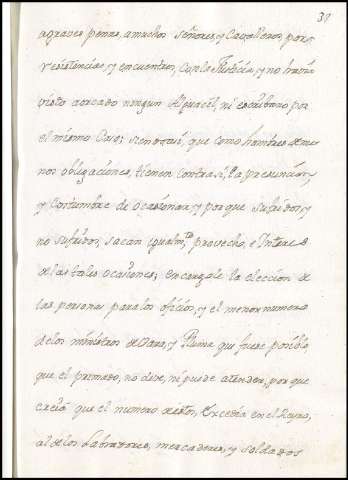 38
agraues penas, amuchos señores, y Caualleros por
resistencias, y encuentros, Con la Justicia, y no hauia
visto aorcado ningun Alguacil, ni escriuano por
el mismo Caso; siendo assi, que como hombres de me
nos obligaciones, tienen contra si, la presuncion,
y Costumbre de ocasionar, y porque sufridos, y
no sufridos, sacan igualmte prouecho, e Interes
de las tales ocasiones; encargale la eleccion de
las personas para los oficios, y el menor numero
de los ministros de Vara, y Pluma que fuere posible
que el priuado, no deue, ni puede atender, por que
creia que el numero destos, Excedia en el Reyno,
al de los Labradores, mercaderes, y soldados